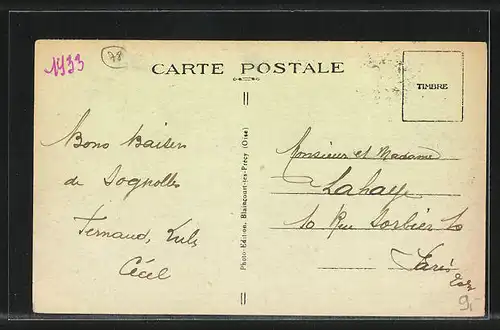 1933
78
CARTE POSTALE
TIMBRE
Bons Baisers
de Sognolles
Fernand, Luls
Cécil
Photo-Edition, Blaincourt-les-Précy (Oise)
Monsieur et Madame
Lahaye
10 Rue Sorbier 10
Paris
9,-